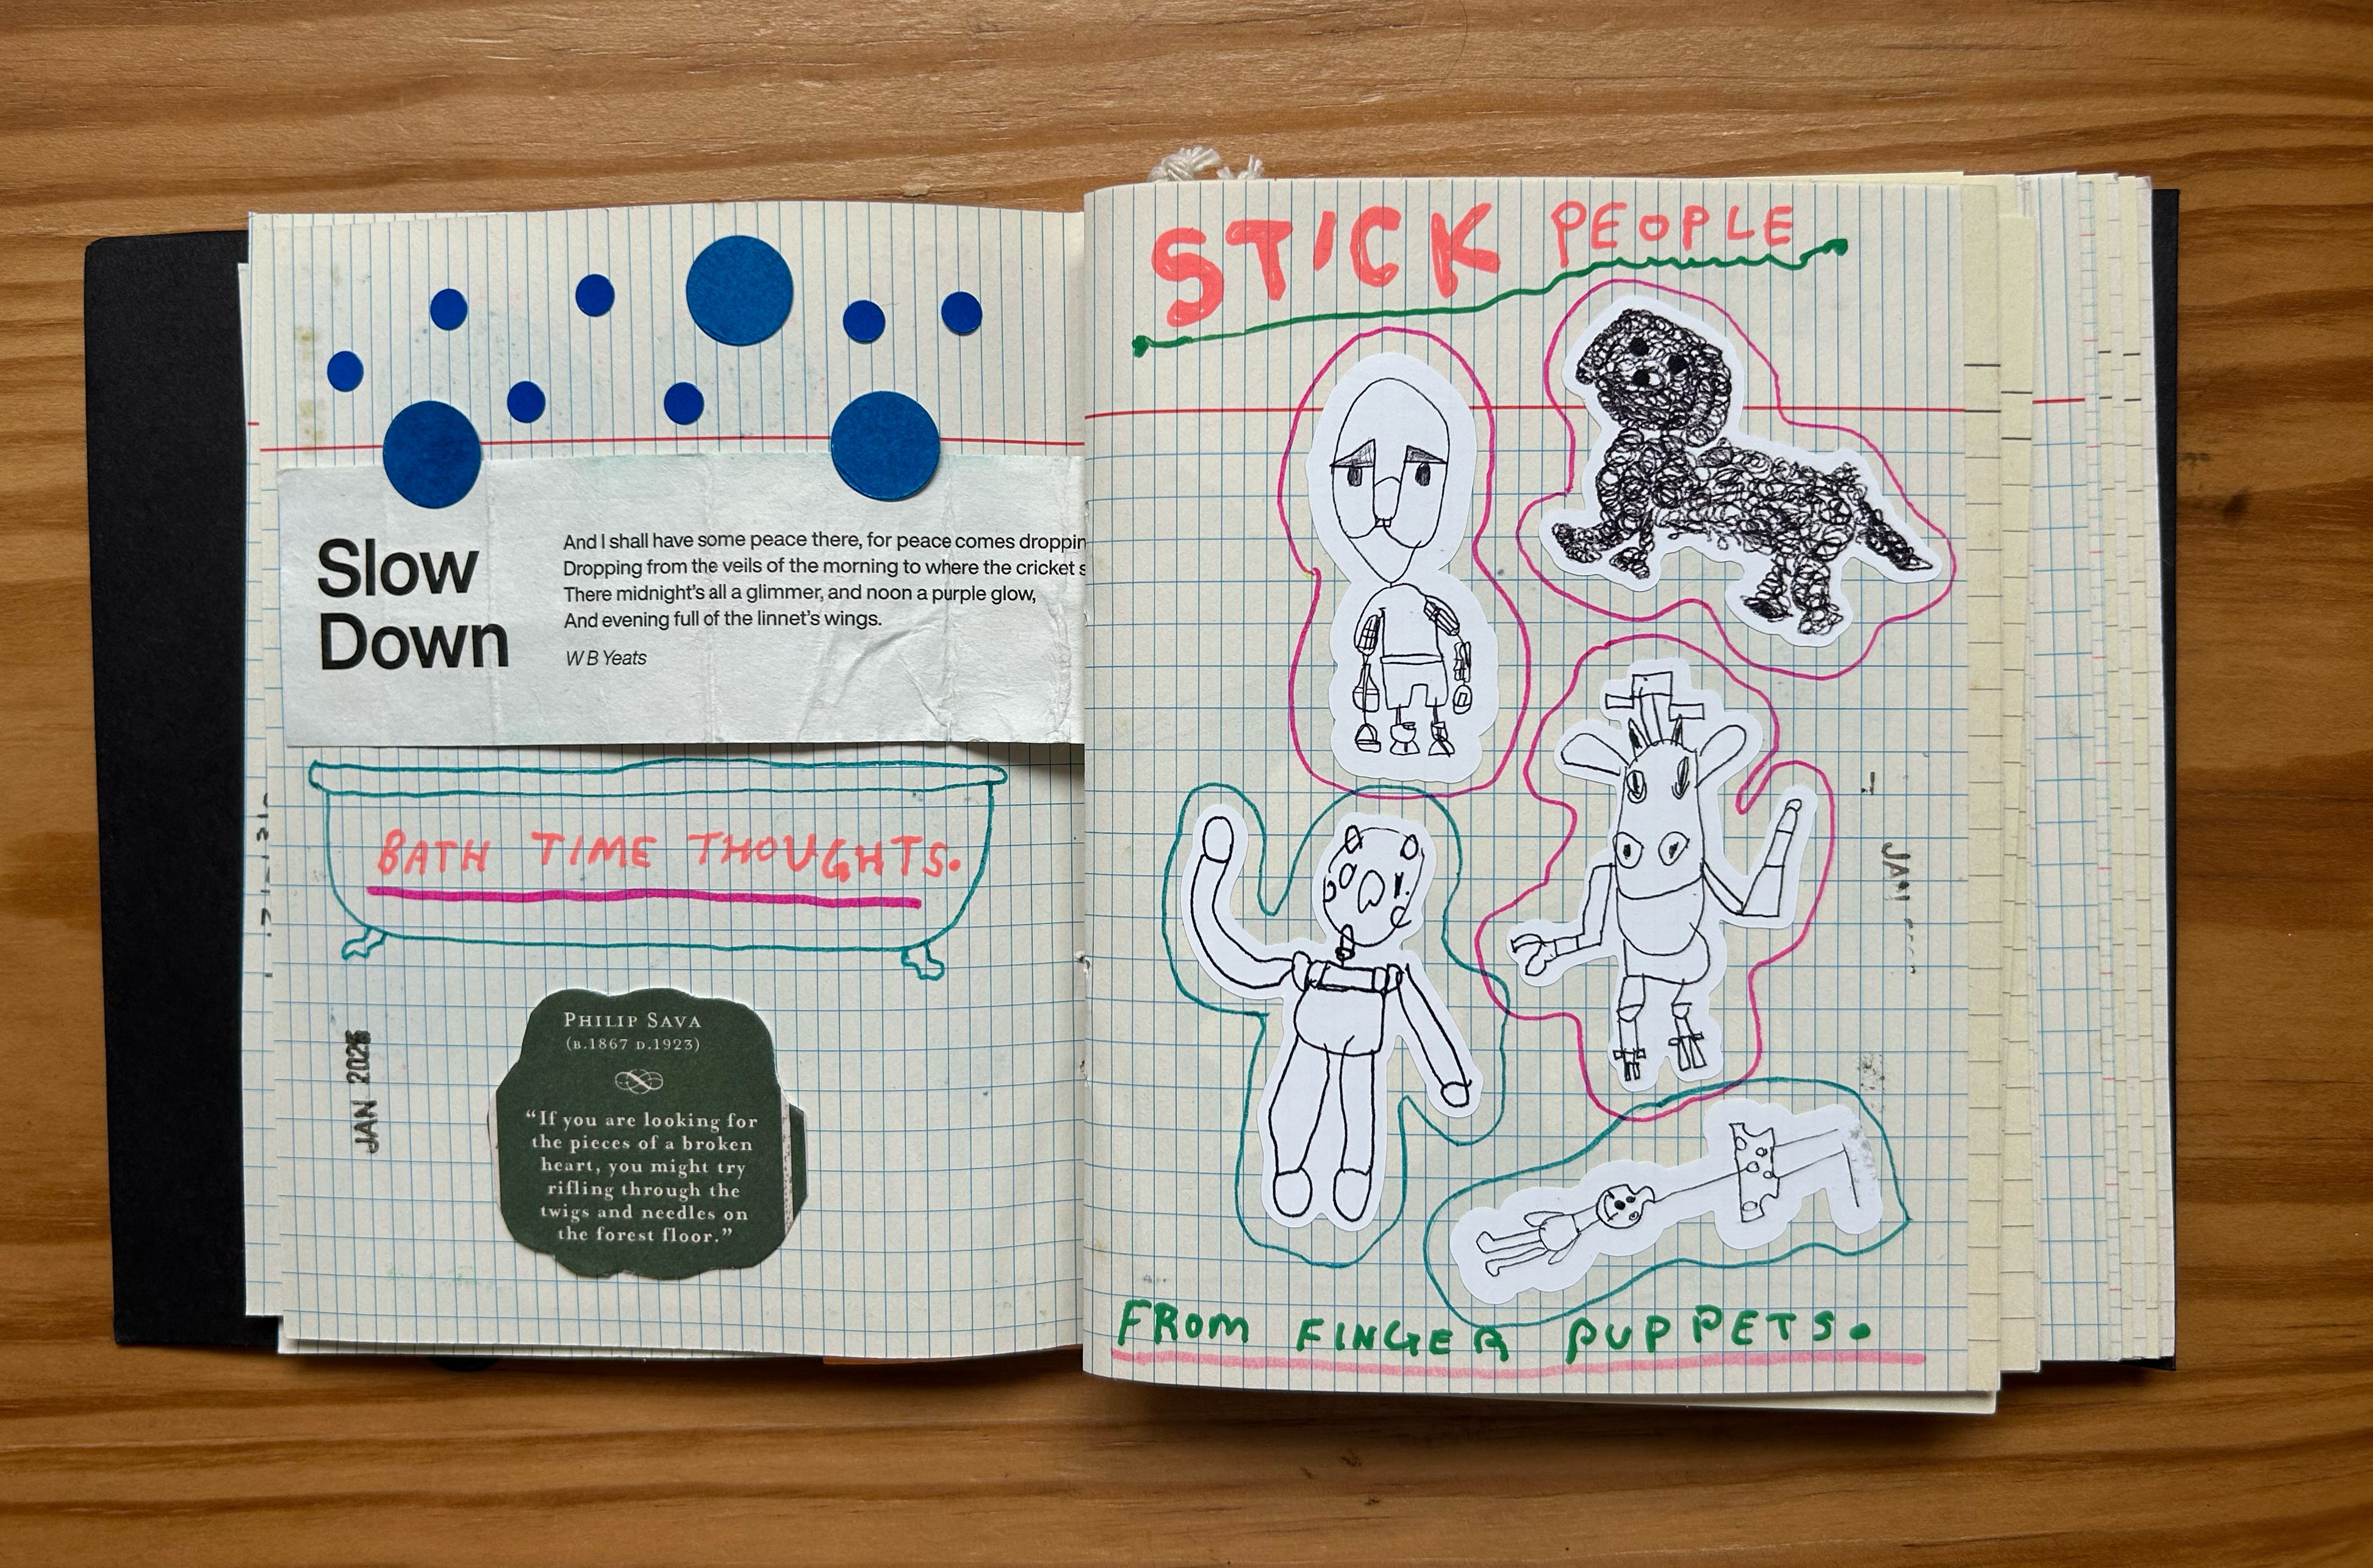 Slow
Down
And I shall have some peace there, for peace comes droppin
Dropping from the veils of the morning to where the cricket s
There midnight's all a glimmer, and noon a purple glow,
And evening full of the linnet's wings.
W B Yeats
BATH TIME THOUGHTS.
JAN 2025
PHILIP SAVA
(B.1867 D.1923)
“If you are looking for
the pieces of a broken
heart, you might try
rifling through the
twigs and needles on
the forest floor.”
STICK PEOPLE
JAN
FROM FINGER PUPPETS.